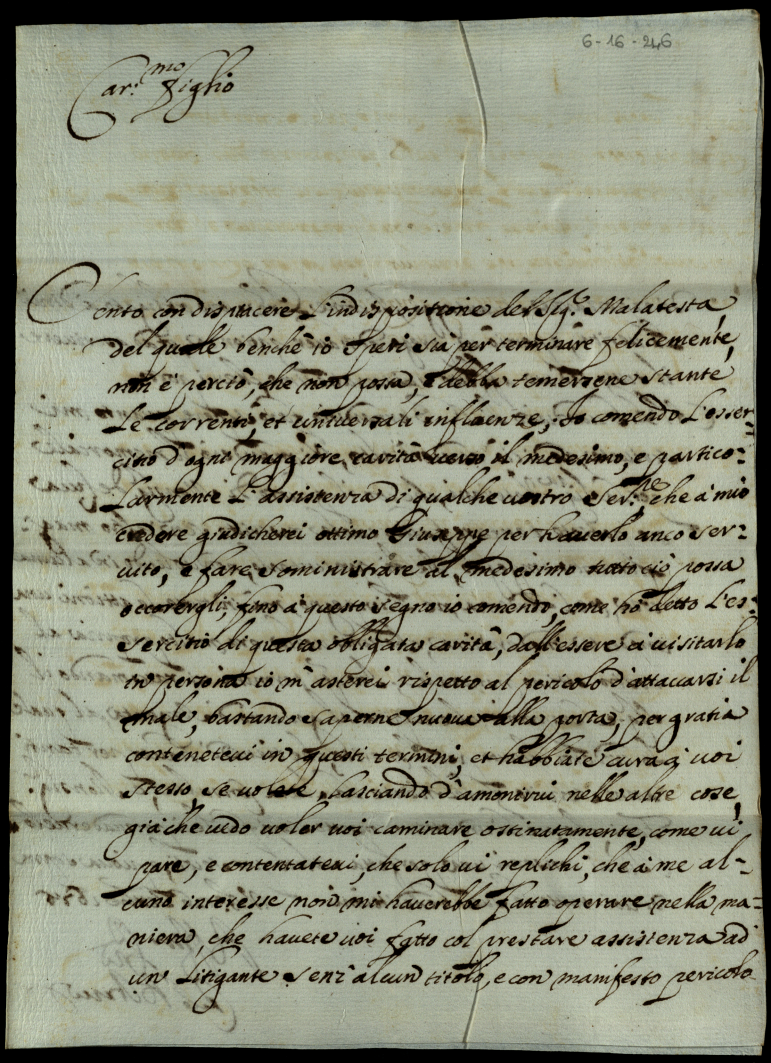 6-16-246
Car.mo Figlio
Sento con dispiacere l'indispositione del Sig.r Malatesta,
del quale benche io speri sia per terminare felicemente,
non è perciò, che non possa, e debba temersene stante
le correnti, et universali influenze, Io comendo l'esser-
citio d'ogni maggiore carità verso il medesimo, e partico-
larmente l'assistenza di qualche vostro Ser.re che à mio
credere giudicherei ottimo Giuseppe per haverlo anco ser-
vito, e fare sominístrare al medesimo tutto ciò possa
occorergli, fino à questo segno io comendo, come hò detto l'es-
sercitio di questa obligata carità, dall'essere à visitarlo
in persona io m'asterei rispetto al pericolo d'attaccarsi il
male, bastando saperne nuova alla porta, per gratia
contenetevi in questi termini, et habbiate cura à voi
stesso, se volete, lasciando d'amonirvi nelle altre cose,
già che vedo voler voi caminare ostinatamente, come vi
pare, e contentatevi, che solo vi replichi, che à me al-
cuno interesse non mi haverebbe fatto operare nella ma-
niera, che havete voi fatto col prestare assistenza ad
un litigante senz'alcun titolo, e con manifesto pericolo